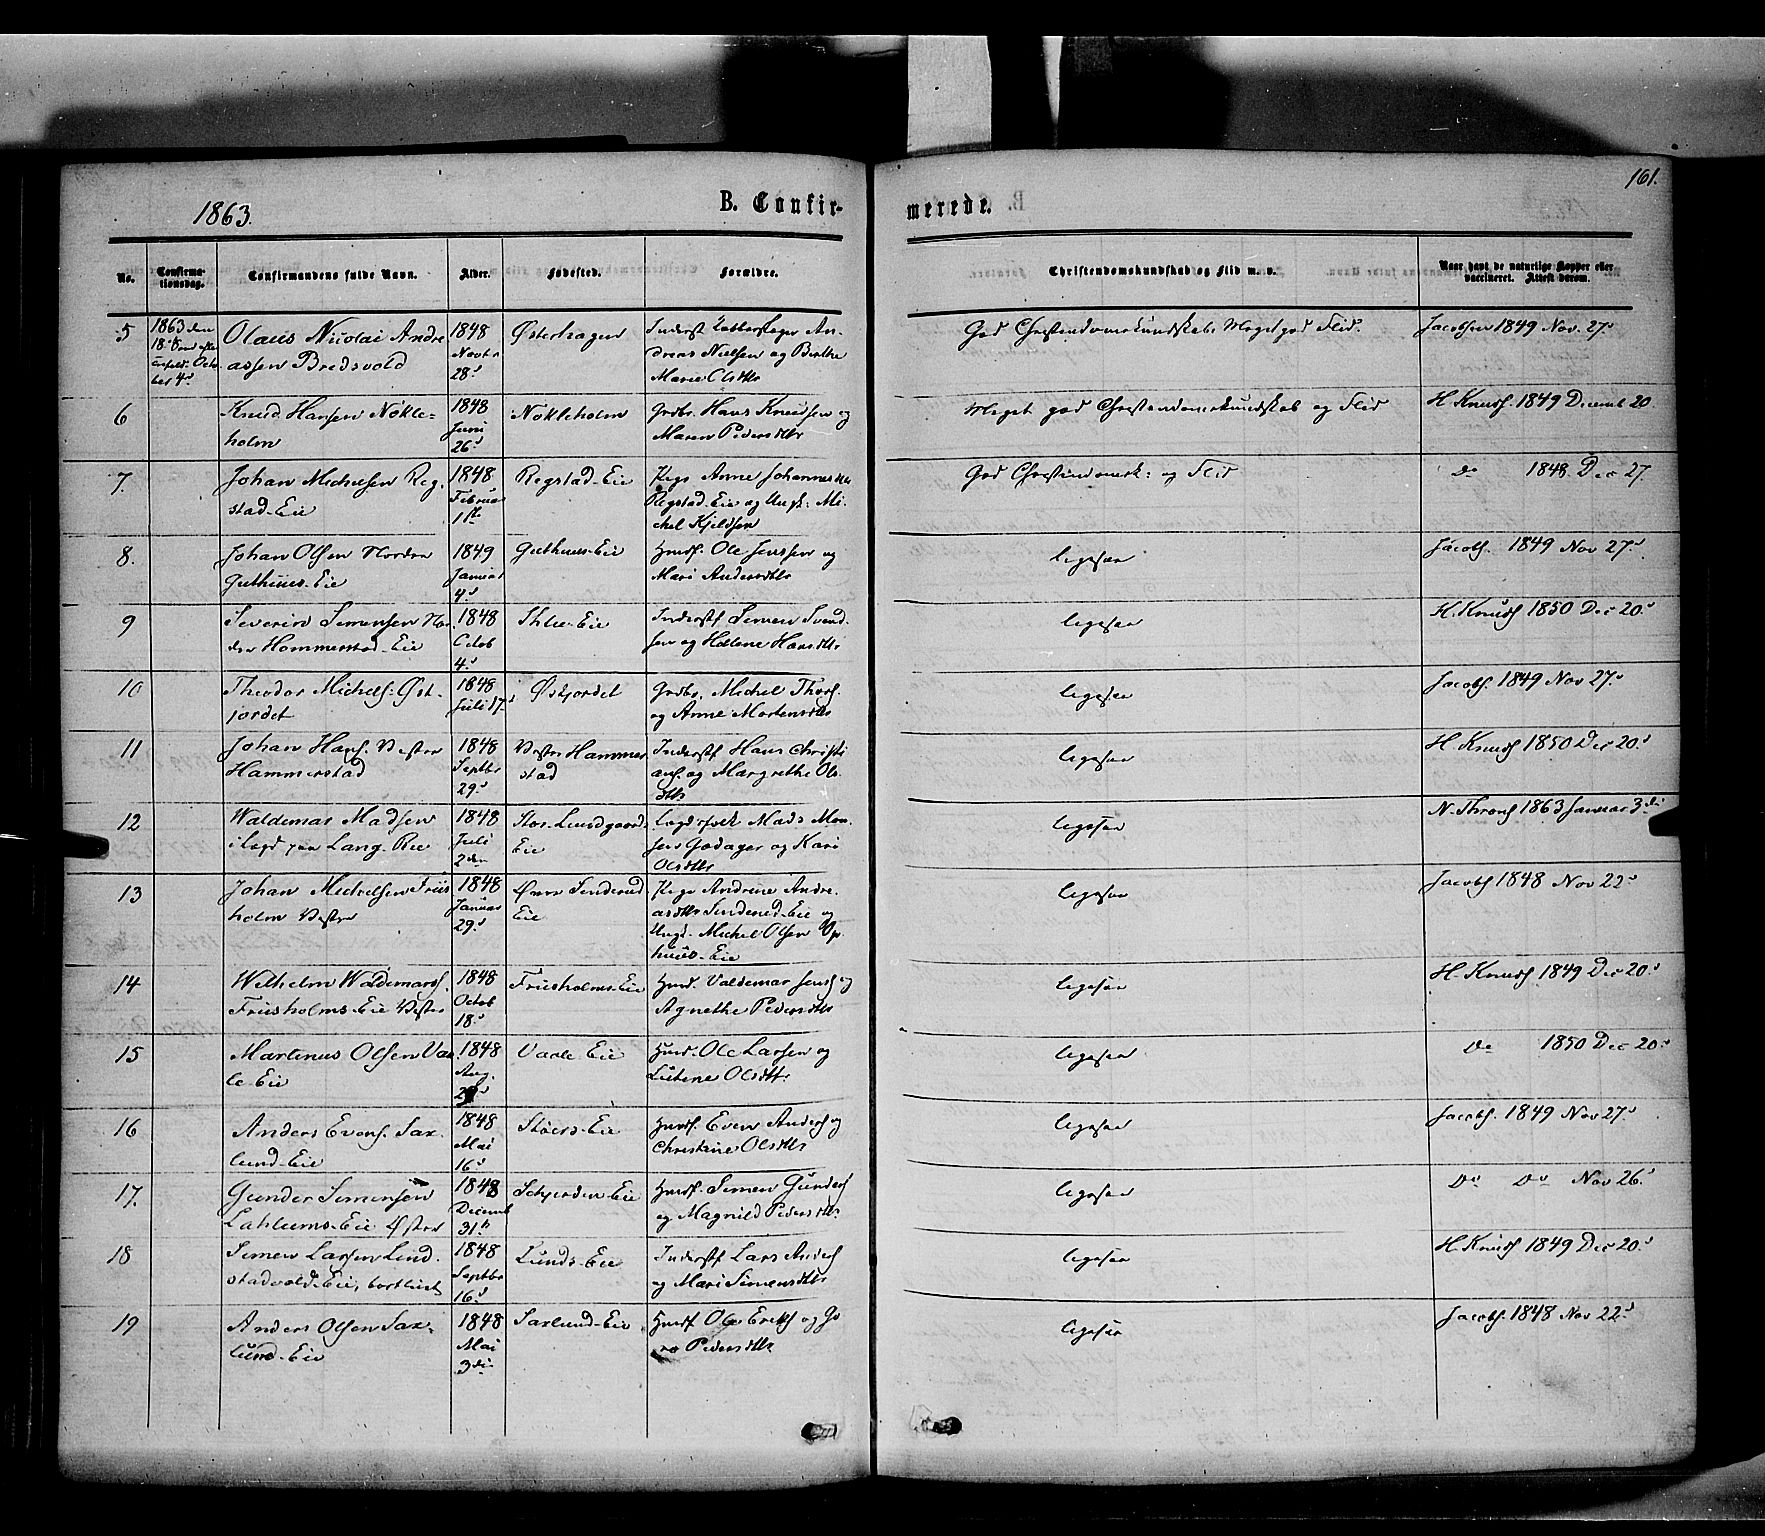 161.
1863.
B. Confirmerede.
No.
Confirmationsdag.
Confirmandens fulde Navn.
Alder.
Fødested.
Forældre.
Christendomskundskab og Flid m. v.
Naar havt de naturlige Kopper eller vaccineret. Attest derom.
5
1863 den 18 S. Octo-
ber 4d
Olaus Nicolai Andre
assen Bredsvold
1848
Novbr
28d
Østerhagen
Inderst Andreas Nielsen og Birthe
Marie Olsdttr
God Christendomskundskab. Meget god Flid.
Jacobsen 1849 Nov. 27d
6
Knud Hansen Nøkle-
holm
1848
Juni
26d
Nøkleholm
Grdbr. Hans Knudsen og
Maren Pedersdttr
Meget god Christendomskundskab og Flid
H. Knuds. 1849 Decemb 20
7.
Johan Michelsen Reg-
stad-Eie
1848
Februar
1ste
Regstad-Eie
Pige Anne Johannesdttr
Regstad-Eie og Ungk: Mi-
chel Kjeldsen
God Christendomsk: og Flid
Do 1848 Dec 27.
8.
Johan Olsen Nordre
Guthuus-Eie
1849
Januar
4d
Guthuus-Eie
Huusm. Ole Jenssen og
Mari Andersdttr
ligesaa
Jacobs. 1849 Nov 27d
9
Severin Simensen No-
dre Hommerstad-Eie
1848
Octob
4d
Ihle-Eie
Inderst Simen Svend-
sen og Helene Hansdttr
ligesaa
H. Knuds 1850 Dec 20d
10
Theodor Michels. Øst-
jordet
1848
Juli 17d
Østjordet
Grdbr. Michel Thors.
og Anne Mortensdttr
ligesaa
Jacobs. 1849 Nov 27d
11
Johan Hans. Vestre
Hammerstad
1848
Septbr
29d
Vestre Hammer
stad
Inderst Hans Christi
ans. og Margrethe Ols-
dttr
ligesaa
H. Knuds 1850 Dec 20d
12
Waldemar Madsen
i Lægd paa Lang-Rie
1848
Juli
2den
Stor-Lundgaards
Eie
Lægdsfolk Mads Mon-
sen Godager og Kari
Olsdttr
ligesaa
N. Throns 1863 Januar 3die
13
Johan Michelsen Friis
holm Vestre
1848
Januar
29d
Øvre Sinderud
Eie
Pige Andrine Andre-
asdttr Sinderud-Eie og
Ungk. Michel Olsen Op-
huus-Eie
ligesaa
Jacobs 1848 Nov 22d
14
Wilhelm Waldemars.
Friisholms-Eie Vestre
1848
Octob
18d
Friisholms-Eie
Huusm. Valdemar Jens. og
Agnethe Pedersdttr
ligesaa
H. Knuds 1849 Dec 20d
15
Martinus Olsen Vaa
le-Eie
1848
Aug.
Vaale Eie
Huusm. Ole Larsen og
Olsdttr
ligesaa
Do 1850 Dec 20d
16
Anders Evens. Sax-
lund-Eie
1848
Mai
16d
Støers-Eie
Huusm. Even Anders. og
Christine Olsdttr
ligesaa
Jacobs. 1849 Nov 27d
17.
Gunder Simensen
Lahlums-Eie Østre
1848
Decemb
31te
Schjerden-Eie
Huusm. Simen Gunders.
og Magnild Pedersdttr
ligesaa
Do Do Nov 26d
18
Simen Larsen Lind-
stadvold-Eie, bortleiet
1848
Septbr
16d
Lunds-Eie
Inderst Lars Anders.
og Mari Simensdttr
ligesaa
H. Knuds 1849 Dec 20d
19
Anders Olsen Sax-
lund-Eie
1848
Mai
3die
Saxlund-Eie
Huusm. Ole Eriks. og Go
ro Pedersdttr
ligesaa
Jacobs. 1848 Nov 22d